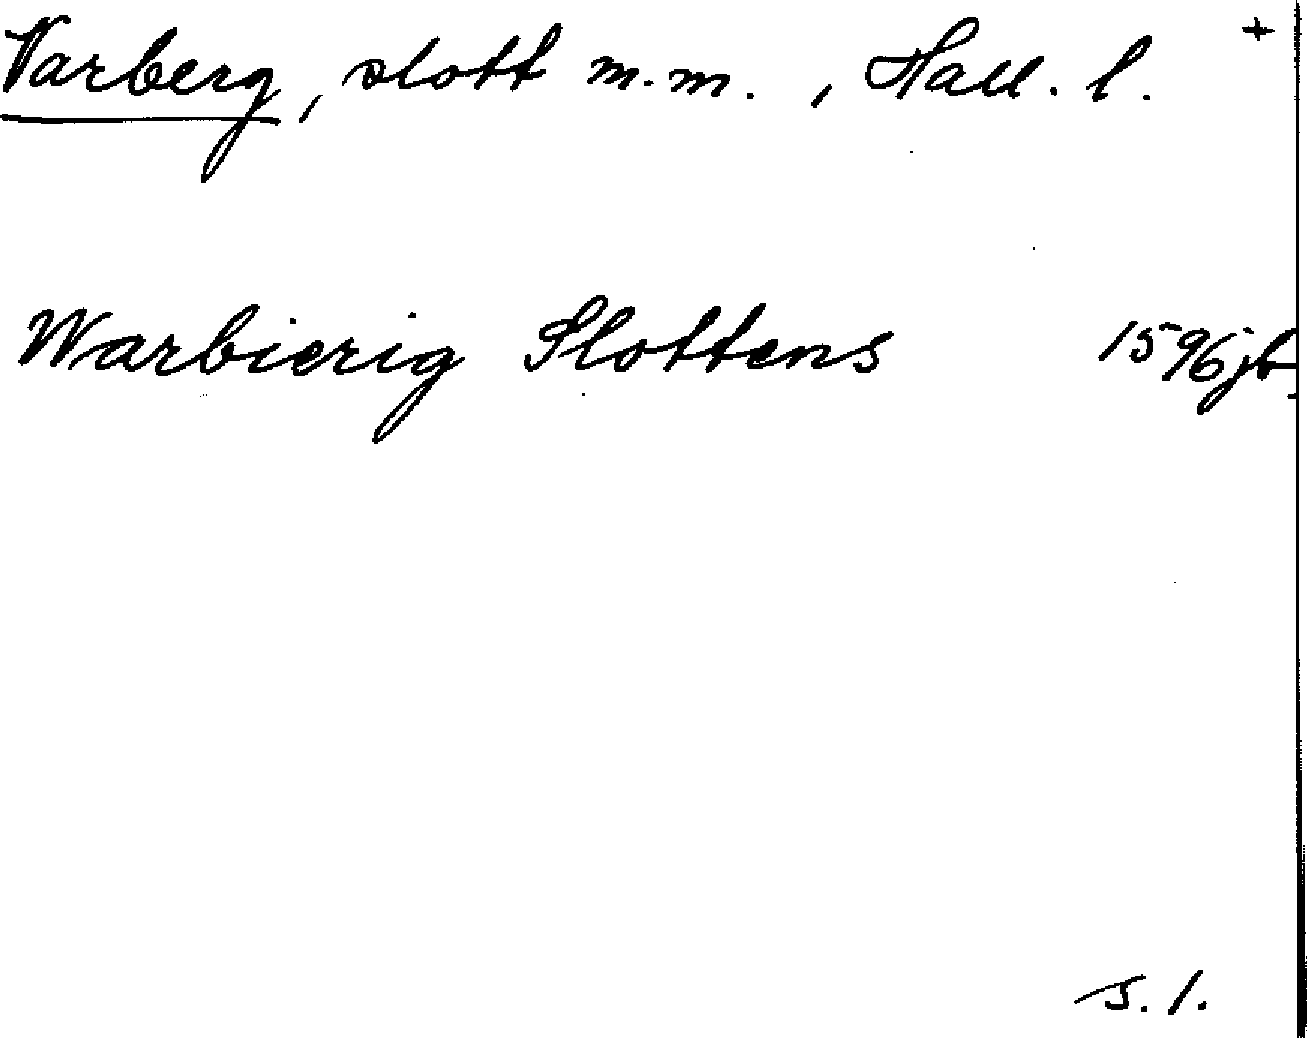 Varberg, slott m.m., Hall. l. +
Warbierig Slottens 1596 jb
s. 1.